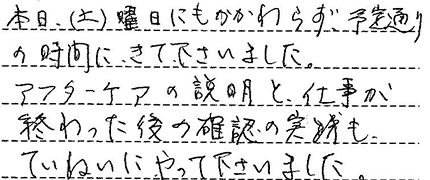 本日、(土)曜日にもかかわらず、予定通り
の時間に、きて下さいました。
アフターケアの説明と、仕事が
終わった後の確認の実践も、
ていねいにやって下さいました。